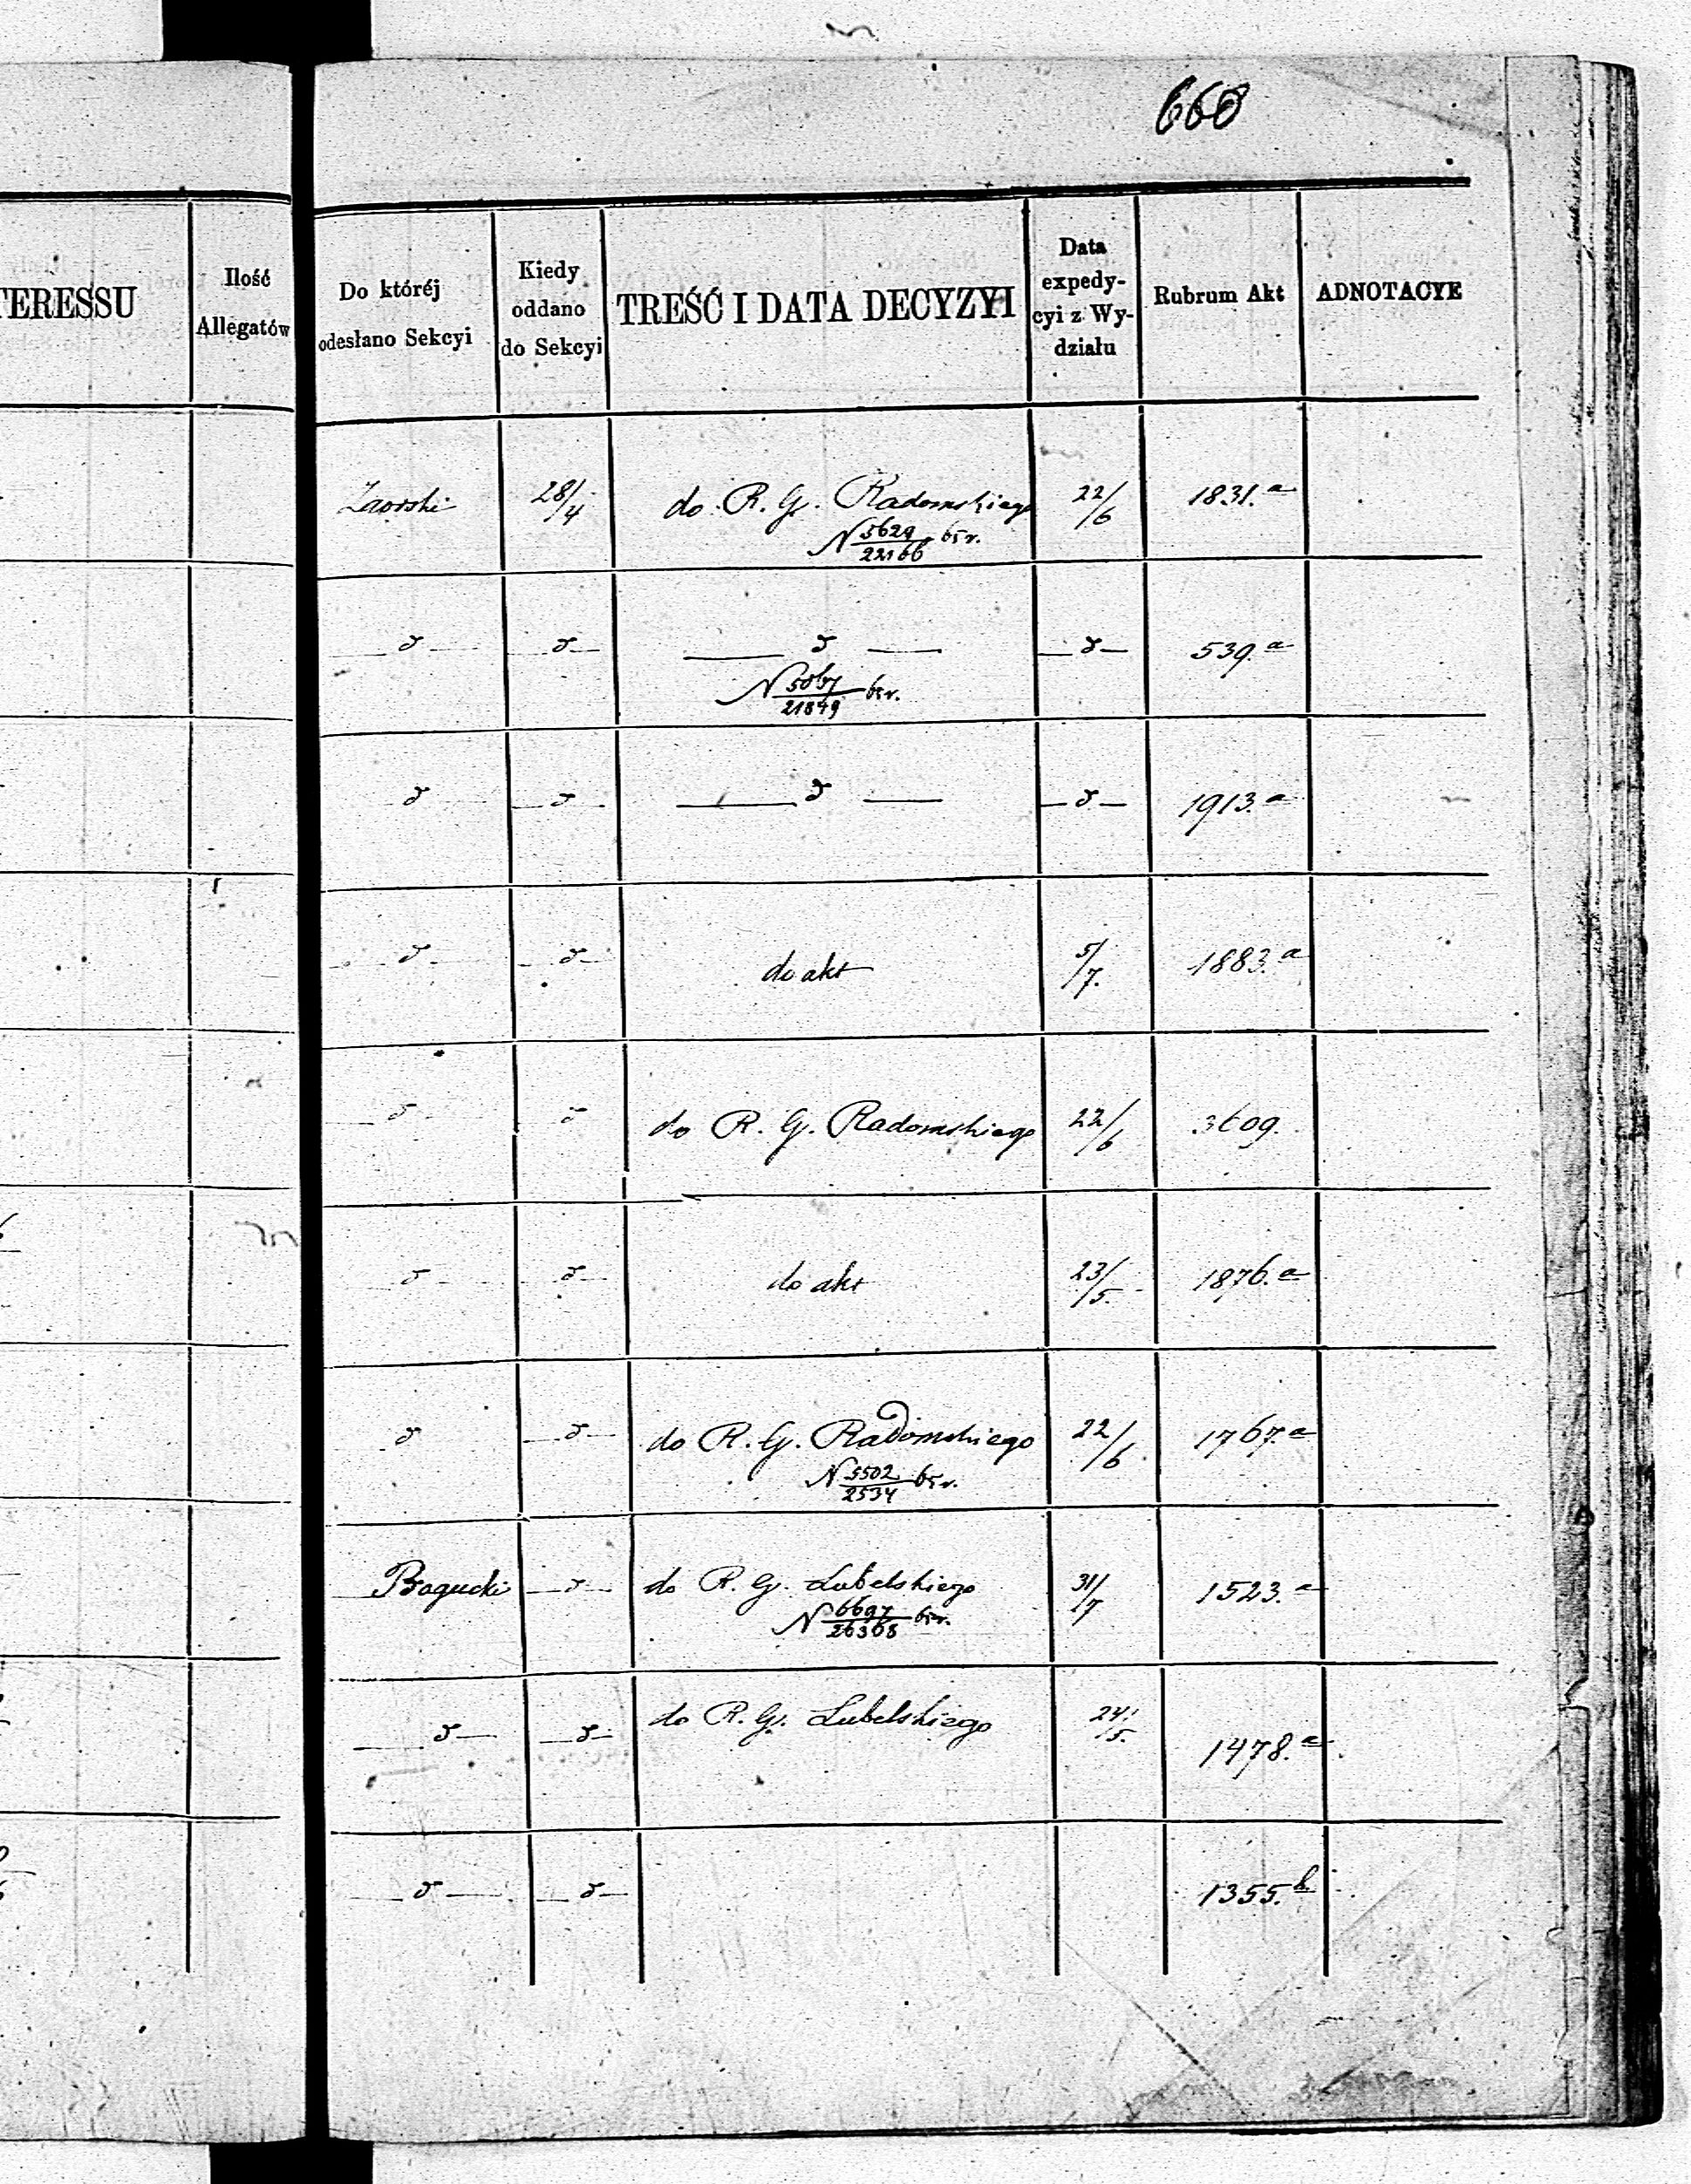 668
TERESSU
Ilość
Allegatów
Do któréj
odesłano Sekcyi
Kiedy
oddano
do Sekcyi
TREŚĆ I DATA DECYZYI
Data
expedy-
cyi z Wy-
działu
Rubrum Akt
ADNOTACYE
Zaorski 28/4 do R. G. Radomskiego 22/6 1831.a
N 5629/22166 65 r.
—d— —d— — d — —d— 539.a
N /21849 65 r.
d —d— — d — —d— 1913.a
d d do akt 5/7. 1883.a
d d do R. G. Radomskiego 22/6 3609.
d d do akt 23/5. 1876.a
d —d— do R. G. Radomskiego 22/6 1767.a
N 5502/2534 65 r.
Bogucki —d— do R. G. Lubelskiego 31/7 1523.a
N 6697/26368 65 r.
—d— —d— do R. G. Lubelskiego 24/5. 1478.a
—d— —d— 1355.b